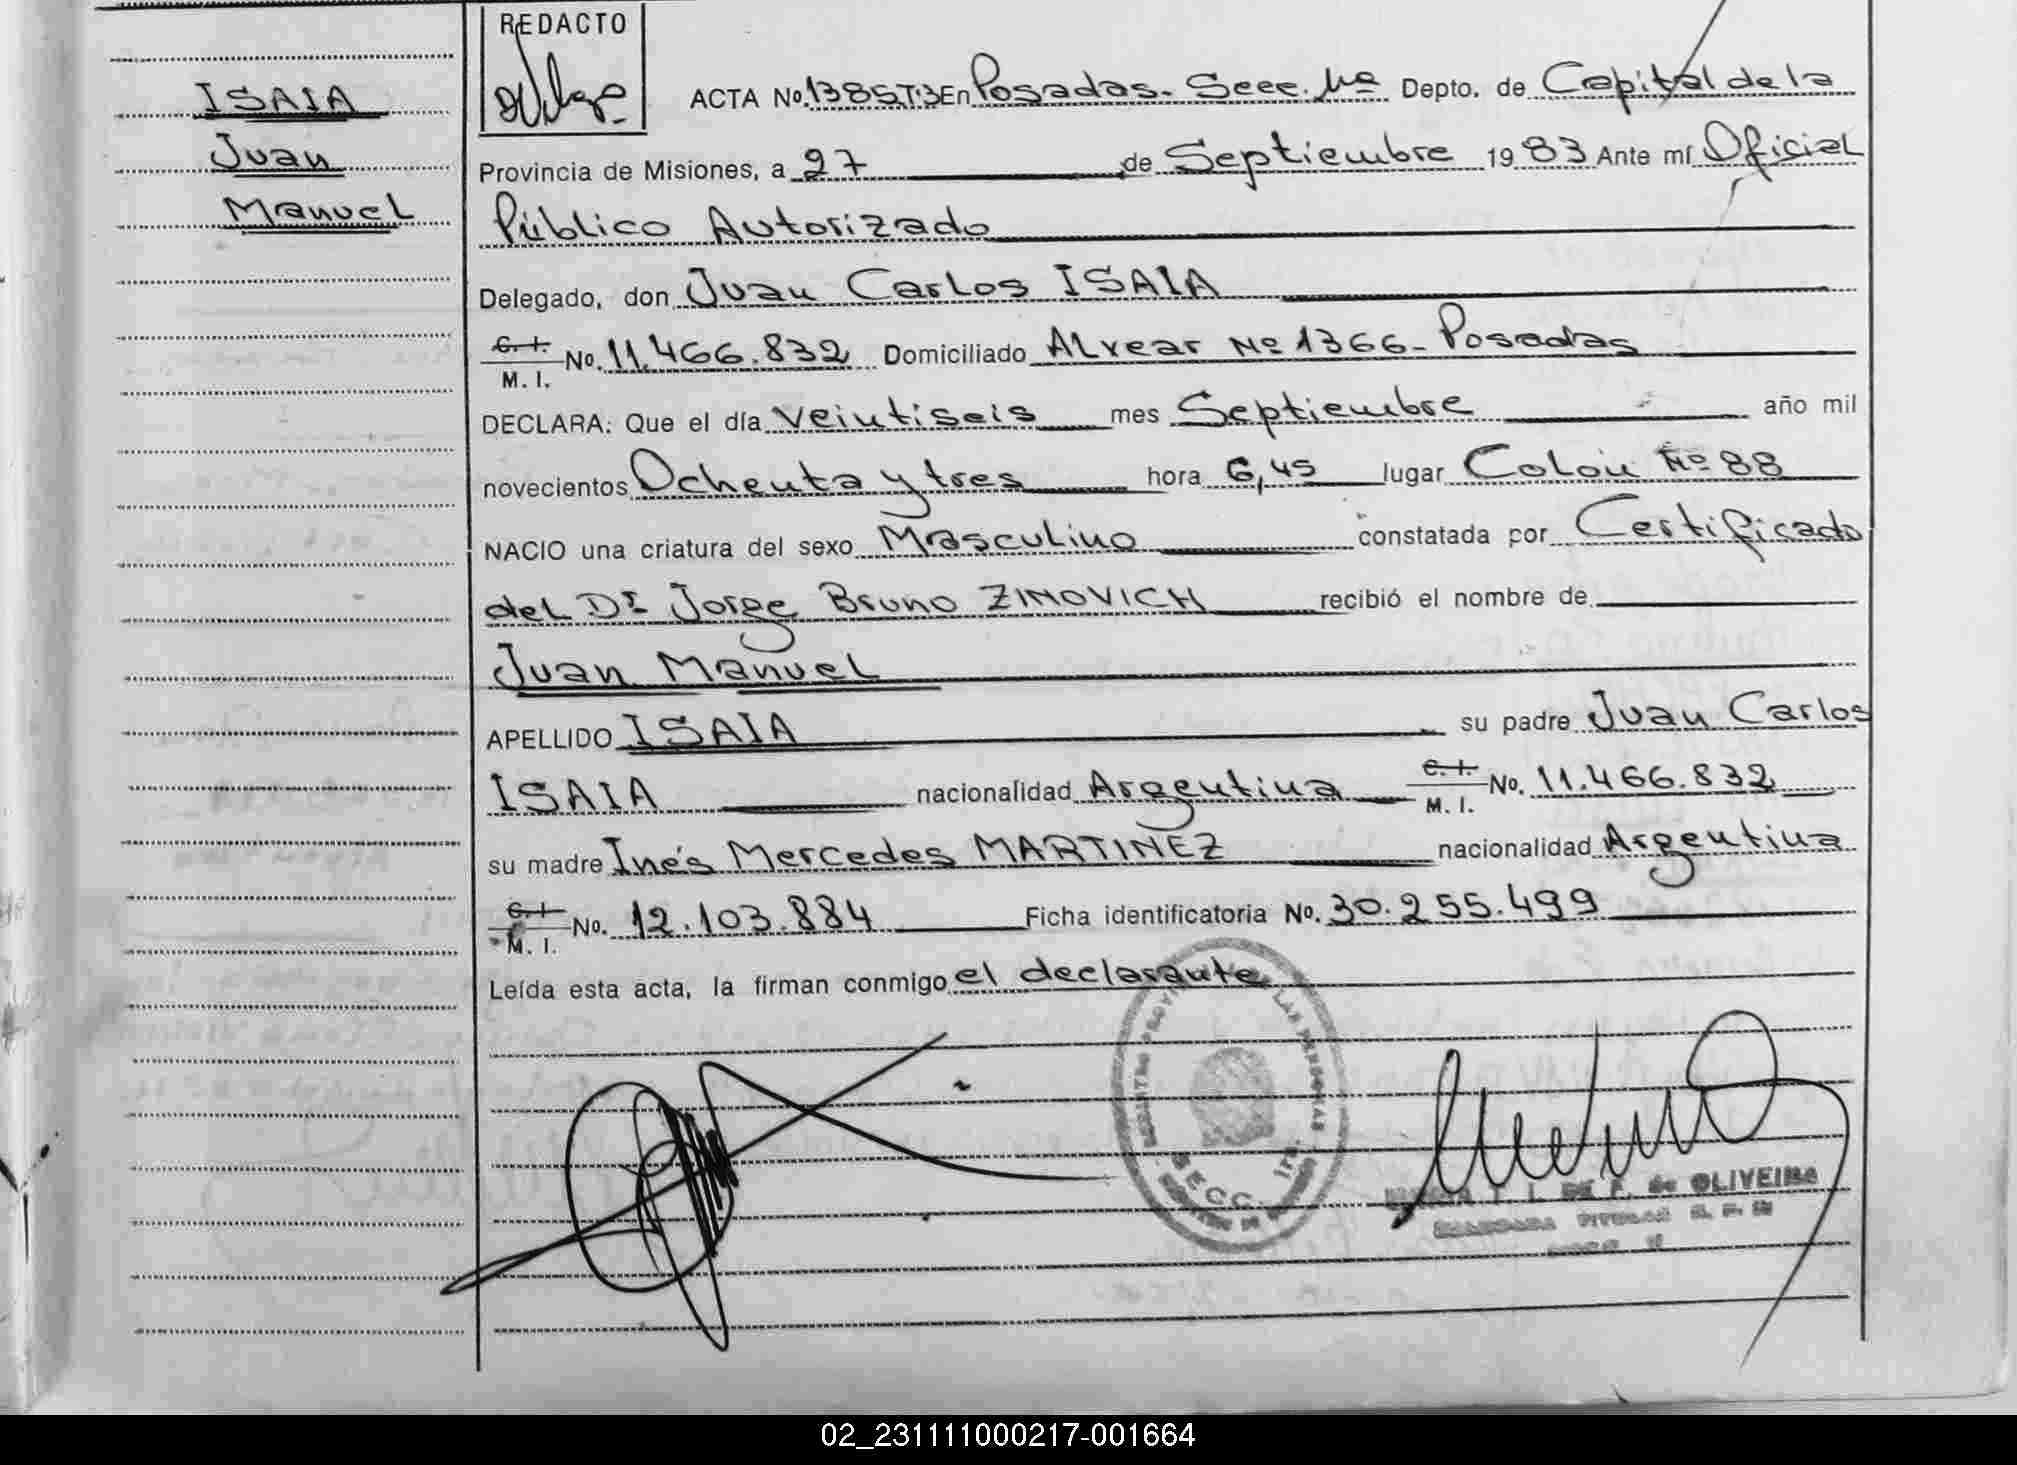 ISAIA
Juan
Manuel
REDACTO
ACTA No. 1385 T.3 En Posadas - Secc. 1ra Depto. de Capital de la
Provincia de Misiones, a 27 de Septiembre 1983 Ante mí Oficial
Público Autorizado
Delegado, don Juan Carlos ISAIA
C. I.
M. I. No. 11.466.832 Domiciliado Alvear Nº 1366 - Posadas
DECLARA: Que el día veintiseis mes Septiembre año mil
novecientos Ochenta y tres hora 6,45 lugar Colón Nº 88
NACIO una criatura del sexo Masculino constatada por Certificado
del Dr Jorge Bruno ZINOVICH recibió el nombre de
Juan Manuel
APELLIDO ISAIA su padre Juan Carlos
ISAIA nacionalidad Argentina C. I. M. I. No. 11.466.832
su madre Inés Mercedes MARTINEZ nacionalidad Argentina
C. I. M. I. No. 12.103.884 Ficha identificatoria No. 30.255.499
Leída esta acta, la firman conmigo el declarante
LAS PERSONAS
SECC. 1ra.
DE OLIVEIRA
02_231111000217-001664